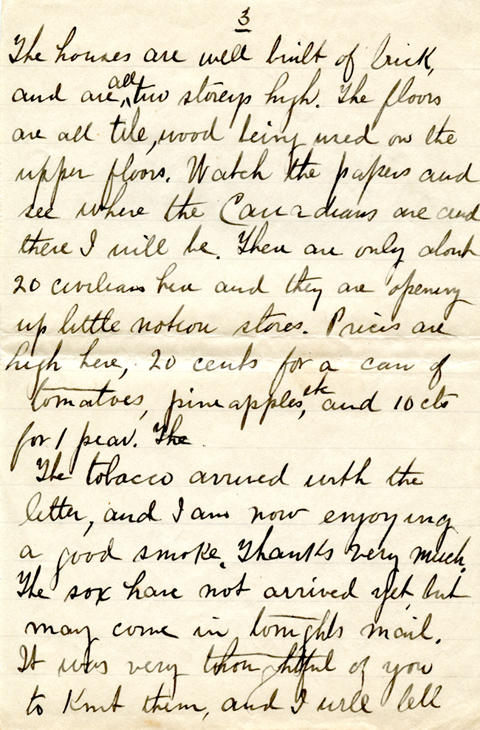 3
The houses are well built of brick,
and are all two storeys high. The floors
are all tile, wood being used on the
upper floors. Watch the papers and
see where the Canadians are and
there I will be. There are only about
20 civilians here and they are opening
up little notion stores. Prices are
high here, 20 cents for a can of
tomatoes, pineapples, etc and 10 cts
for 1 pear. The
The tobacco arrived with the
letter, and I am now enjoying
a good smoke. Thanks very much.
The sox have not arrived yet, but
may come in tonights mail.
It was very thoughtful of you
to knit them, and I will tell